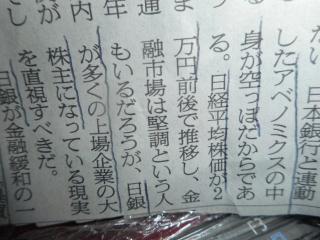 ま
通
年
内
が
日本銀行と連動
したアベノミクスの中
身が空っぽだからであ
る。日経平均株価が2
万円前後で推移し、金
融市場は堅調という人
もいるだろうが、日銀
が多くの上場企業の大
株主になっている現実
を直視すべきだ。
日銀が金融緩和の一